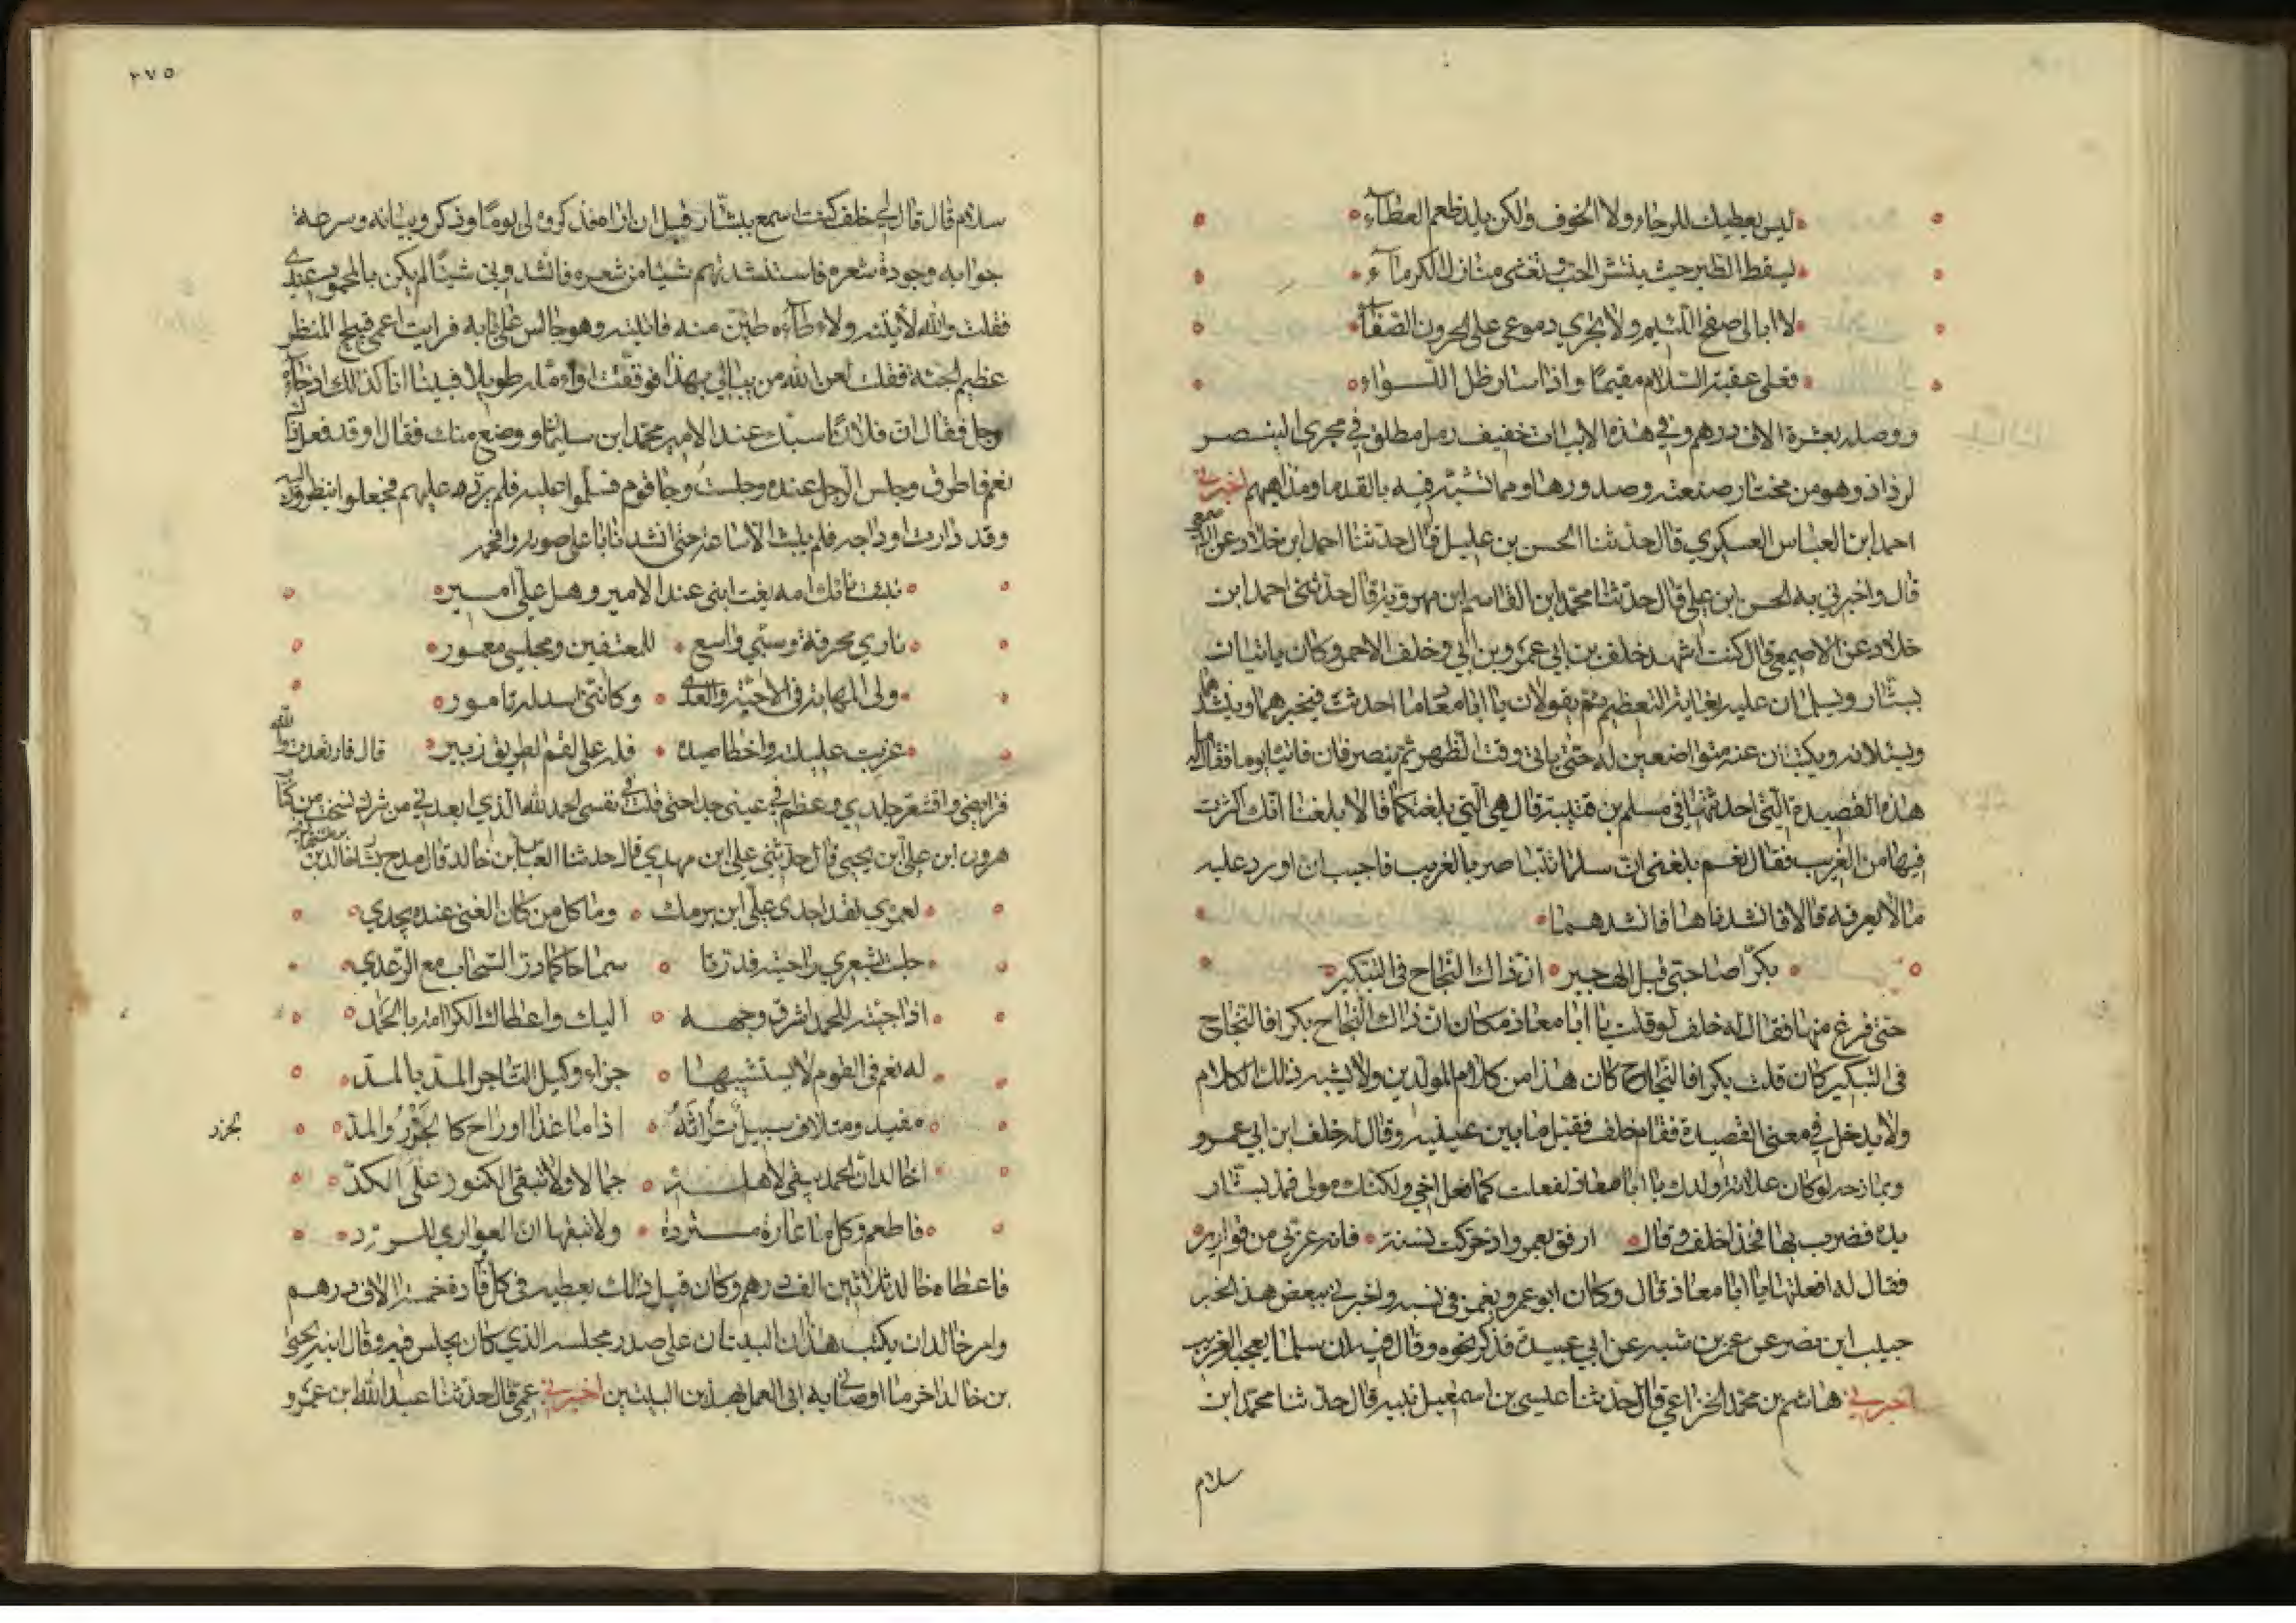 ليس يعطيك للرجاء ولا الخوف ولكن يلذ طعم العطآء
يسقط الطير حيث ينتثر الحب وتغشى منازل الكرمآء
لا ابالى صفح اللئيم ولا تجري دموعى على الحرون الصفآء
فعلى عقبة السلام مقيمًا واذا سار تحت ظل اللواء
ووصله بعشرة الاف درهم وفي هذه الابيات خفيف رمل مطلق في مجرى البنصر
لرذاذ وهو من مختار صنعته وصدورها ومما تشبّه فيه بالقدما ومذاهبهم اخبرني
احمد ابن العباس العسكري قال حدثنا الحسن بن عليل قال حدثنا احمد ابن خلاد عن الاصمعي
قال واخبرني به الحسن ابن علي قال حدثنا محمد ابن القاسم ابن مهرويه قال حدثنى احمد ابن
خلاد عن الاصمعي قال كنت اشهد خلف بن ابي عمرو بن ابي وخلف الاحمر وكان ياتيان
بشّار ويسلمان عليه بغاية التعظيم ثم يقولان يا ابا معاذ ما احدثت فيخبرهما وينشدهما
ويسئلانه ويكتبان عنه متواضعين له حتى ياتى وقت الظهر ثم ينصرفان فاتياه يوما فقالا له ما
هذه القصيدة التى احدثتها في مسلم بن قتيبة قال هي التي بلغتكما قالا بلغنا انك اكثرت
فيها من الغريب فقال نعم بلغنى ان سلما يتباصر بالغريب فاحببت ان اورد عليه
ما لا يعرفه قالا فانشدناها فانشدهما
بكرّا صاحبي قبل الهجير ان ذاك النجاح في التبكير
حتى فرغ منها فقال له خلف لو قلت يا ابا معاذ مكان ان ذاك النجاح بكرا فالنجاح
في التبكير كان قلت بكرا فالنجاح كان هذا من كلام المولدين ولا يشبه ذلك الكلام
ولا يدخل في معنى القصيدة فقام خلف فقبل ما بين عينيه وقال له خلف ابن ابي عمرو
يمازحه لو كان علاثة ولدك يا ابا معاذ لفعلت كما فعل اخي ولكنك مولى فمد بشار
يده فضرب بها فخذ خلف وقال ارفق بعمرو اذ حركت نسبته فانه عربي من قوارير
فقال له افعلتها يا ابا معاذ قال وكان ابو عمرو يغمز في نسبه واخبرني ببعض هذا الخبر
حبيب ابن نصر عن عمر بن شبه عن ابي عبيدة فذكر نحوه وقال فيه ان سلما يعجبه الغريب
اخبرني هاشم بن محمد الخزاعي قال حدثنا عيسى بن اسمعيل تينه قال حدثنا محمد ابن
سلام
٢٧٥
سلام قال قال لي خلف كنت اسمع ببشّار قبل ان اراه فذكروه لي يومًا وذكروا بيانه وسرعة
جوابه وجودة شعره فاستنشدتهم شيئا من شعره فانشدوني شيئًا لم يكن بالمحمود عندي
فقلت والله لأتينه ولاطأطئن منه فاتيته وهو جالس على بابه فرايت اعمى قبيح المنظر
عظيم الجثة فقلت لعن الله من يبالي بهذا فوقفت اتأمله طويلا فبينا انا كذلك اذ جآءه
رجل فقال ان فلانًا سبك عند الامير محمد ابن سليمان ووضع منك فقال او قد فعل قال
نعم فاطرق وجلس الرجل عنده وجلست وجا قوم فسلموا عليه فلم يردد عليهم فجعلوا ينظرون اليه
وقد دارت اوداجه فلم يلبث الا ساعة حتى انشدنا باعلى صوته وافخمه
نبئت نائك امه يغتابنى عند الامير وهل علي امير
ناري محرقة وسيبي واسع للمعتفين ومجلسي معمور
ولى المهابة في الاحبة والعدى وكاننى اسد له تامور
غرثت حليلته واخطا صيده فله على لقم الطريق زبير قال فارتعدت والله
فرايصي واقشعر جلدي وعظم في عيني جدا حتى قلت في نفسي الحمد لله الذي ابعدني من شرك نسخت من كتاب
هرون ابن علي ابن يحيى قال حدثني علي ابن مهدي قال حدثنا العباس ابن خالد قال مدح بشار خالد بن برمك
لعمري لقد اجدى علي ابن برمك وما كل من كان الغنى عنده يجدي
حلبت بشعري راحتيه فدرتا سماحا كما در السحاب مع الرعدي
اذا جئته للحمد اشرق وجهه اليك واعطاك الكرامة بالحمد
له نعم في القوم لا يستثيبها جزاء وكيل التاجر المد بالمد
مفيد ومتلاف سبيل تراثه اذا ما غدا اوراح كالجزر والمد
بجزر
اخالد ان الحمد يبقى لاهله جمالا ولا تبقى الكنوز على الكد
فاطعم وكل من عارة مستردة ولا تبقها ان العواري للرد
فاعطاه خالد ثلاثين الف درهم وكان قبل ذلك يعطيه في كل وفادة خمسة الاف درهم
وامر خالد ان يكتب هذان البيتان على صدر مجلسه الذي كان يجلس فيه وقال ابنه يحيى
بن خالد اخر ما اوصاني به ابى العمل بهذين البيتين اخبرني عمي قال حدثنا عبد الله ابن عمرو